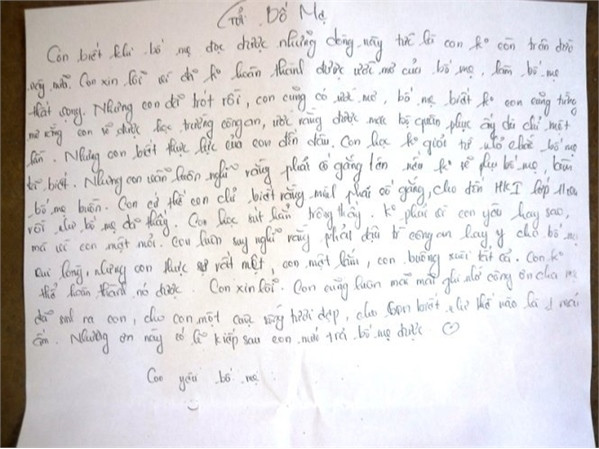 Gửi Bố Mẹ
Con biết khi bố mẹ đọc được những dòng này tức là con ko còn trên đời
này nữa. Con xin lỗi vì đã ko hoàn thành được ước mơ của bố mẹ, làm bố mẹ
thất vọng. Nhưng con đã trót rồi, con cũng có ước mơ, bố mẹ biết ko con cũng từng
mơ rằng con sẽ được học trường công an, ước rằng được mặc bộ quân phục ấy dù chỉ một
lần. Nhưng con biết thực lực của con đến đâu. Con học ko giỏi từ nhỏ chắc bố mẹ
là biết. Nhưng con vẫn luôn nghĩ rằng phải cố gắng lên nếu ko sẽ phụ bố mẹ, làm
bố mẹ buồn. Con cứ thế con chỉ biết rằng mình phải cố gắng, cho đến HKI lớp 11
rồi như bố mẹ đã thấy. Con học tụt hẳn trông thấy. Ko phải vì con yêu hay sao,
mà vì con mệt mỏi. Con luôn suy nghĩ rằng phải đậu công an hay y cho bố mẹ
vui lòng, nhưng con thực sự rất mệt, con mệt lắm, con buông xuôi tất cả. Con ko
thể hoàn thành nó được. Con xin lỗi. Con cũng luôn mãi mãi ghi nhớ công ơn cha mẹ
đã sinh ra con, cho con một cuộc sống tươi đẹp, cho con biết như thế nào là 1 mái
ấm. Nhưng ơn này có lẽ kiếp sau con mới trả bố mẹ được
Con yêu bố mẹ